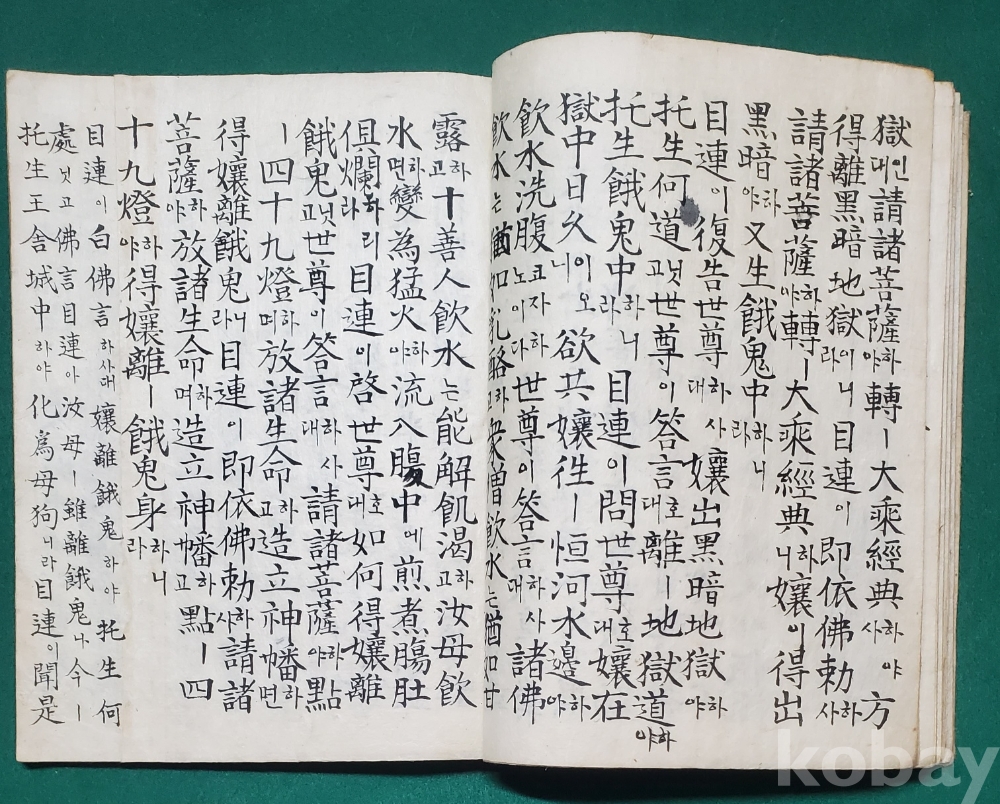 獄인대請諸菩薩하야轉ㅣ大乘經典하야사方
得離黑暗地獄이니라目連이即依佛勅하사
請諸菩薩하야轉ㅣ大乘經典하니孃이得出
黑暗하야又生餓鬼中하니라
目連이復告世尊하사대孃出黑暗地獄하야
托生何道닛고世尊이答言호대離ㅣ地獄道하야
托生餓鬼中하니라目連이問世尊호대孃在
獄中日久이오니欲共孃徃ㅣ恒河水邊하야
飮水洗腹코자하노이다世尊이答言하사대諸佛
飮水는猶如乳酪하고衆僧飮水는猶如甘
露하고十善人飮水는能解飢渴하고汝母飮
水하면變為猛火하야流入膓中에煎煮膓肚
俱爛하리라目連이啓世尊호대如何得孃離
餓鬼닛고世尊이答言하사대請諸菩薩하야點
ㅣ四十九燈하며放諸生命하고造立神幡하면
得孃離餓鬼니라目連이即依佛勅하사請諸
菩薩하야放諸生命하며造立神幡하고點ㅣ四
十九燈하야得孃離ㅣ餓鬼身하니라
目連이白佛言하사대孃離餓鬼하야托生何
處닛고佛言目連아汝母ㅣ雖離餓鬼나今ㅣ
托生王舍城中하야化爲母狗니라目連이聞是
kobay